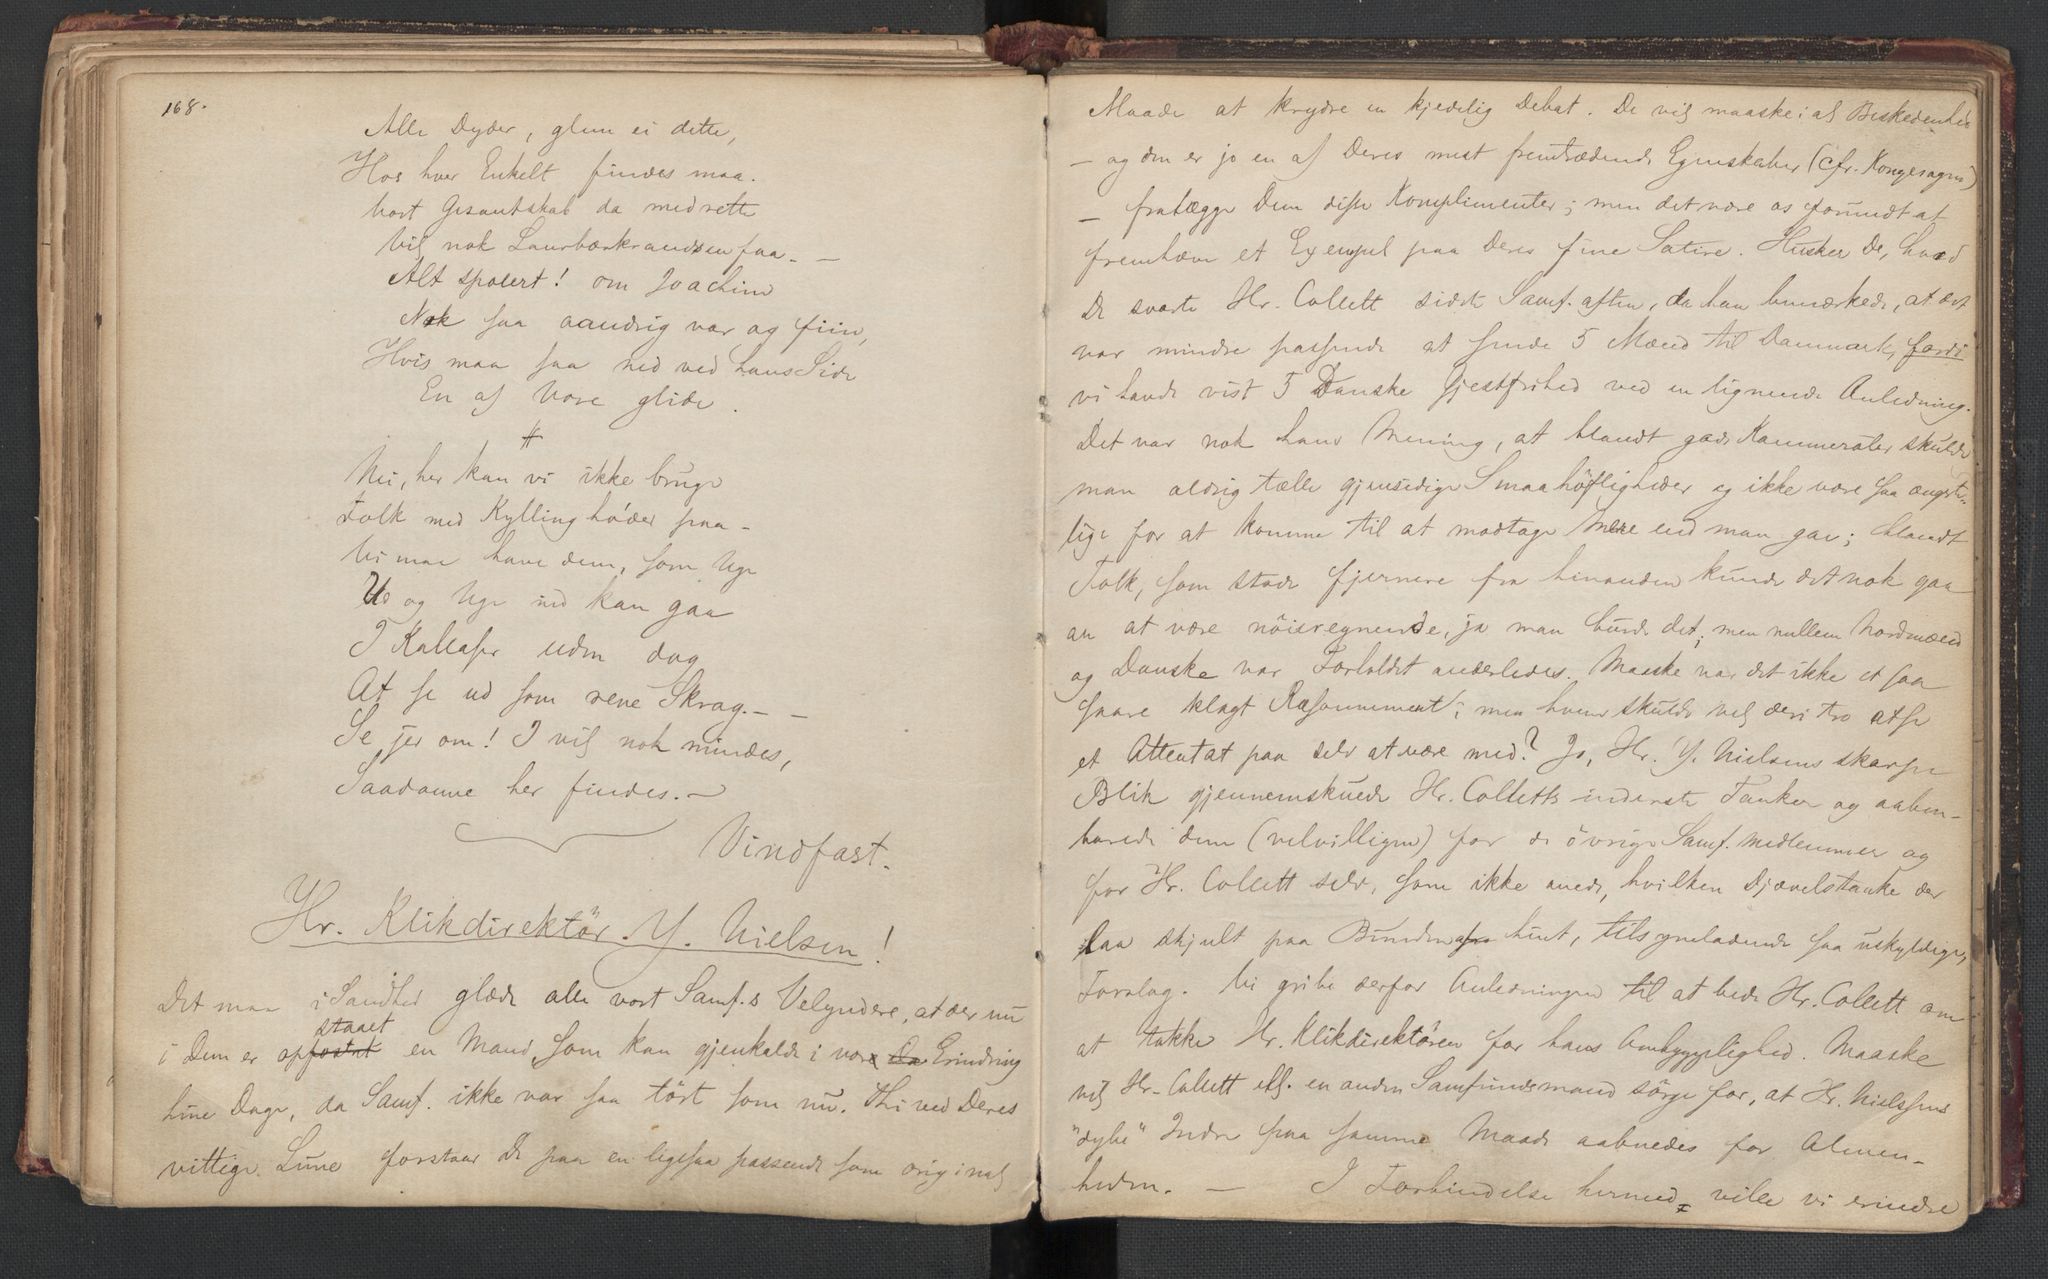 168.
Alle Dyder, glem ei dette,
Hos hver Enkelt findes maa.
Vort Gesantskab da med rette
Vil nok Laurbærkrandsen faa. —
Alt spolert! om Joachim
Nok saa aandrig var og fiin,
Hvis maa saa ned ved hans Side
En af Vore glide.
Nei, her kan vi ikke bruge
Folk med Kyllinghoder paa —
Vi maa have dem, som Uge
Ud og Uge ind kan gaa
I Kallaser uden dog
At se ud som rene Skrog. —
Se jer om! I vil nok mindes,
Saadanne her findes. —
Vindfast.
Hr. Klikdirektör Y. Nielsen!
Det maa i Sandhed glæde alle vort Samf.s Velyndere, at der nu
i Dem er opstaaet en Mand, som kan gjenkalde i vor Erindring
hine Dage, da Samf. ikke var saa tört som nu. Thi ved Deres
vittige Lune forstaar De paa en ligesaa passende som original
Maade at krydre en kjedelig Debat. De vil maaske i al Beskedenhed
— og den er jo en af Deres mest fremtrædende Egenskaber (cfr. Kongesagnet)
— fralægge Dem disse Komplimenter; men det være os forundt at
fremhæve et Exempel paa Deres fine Satire. Husker De, hvad
De svarte Hr. Collett sidste Samf. aften, da han bemærkede, at det
var mindre passende at sende 5 Mænd til Danmark, fordi
vi havde vist 5 Danske Gjestfrihed ved en lignende Anledning.
Det var nok hans Mening, at blandt gode Kammerater skulde
man aldrig tælle gjensidige Smaahöfligheder og ikke være saa ængste-
lige for at komme til at modtage mere end man gav; blandt
Folk, som stode fjernere fra hinanden kunde det nok gaa
an at være nöieregnende, ja man burde det; men mellem Nordmænd
og Danske var Forholdet anderledes. Maaske var det ikke et saa
saare klogt Räsonnement; men hvem skulde vel deri tro at se
et Attentat paa selv at være med? Jo, Hr. Y. Nielsens skarpe
Blik gjennemskuede Hr. Colletts inderste Tanker og aaben-
barede dem (velvilligen) for de övrige Samf. medlemmer og
for Hr. Collett selv, som ikke anede, hvilken Djævelstanke der
laa skjult paa Bunden af hint, tilsyneladende saa uskyldige,
Forslag. Vi gribe derfor Anledningen til at bede Hr. Collett om
at takke Hr. Klikdirektören for hans Ombyggelighed. Maaske
vil Hr. Collett ell. en anden Samfundsmand sörge for, at Hr. Nielsens
"dybe" Indre paa samme Maade aabnedes for Almen-
heden. — I Forbindelse hermed ville vi erindre